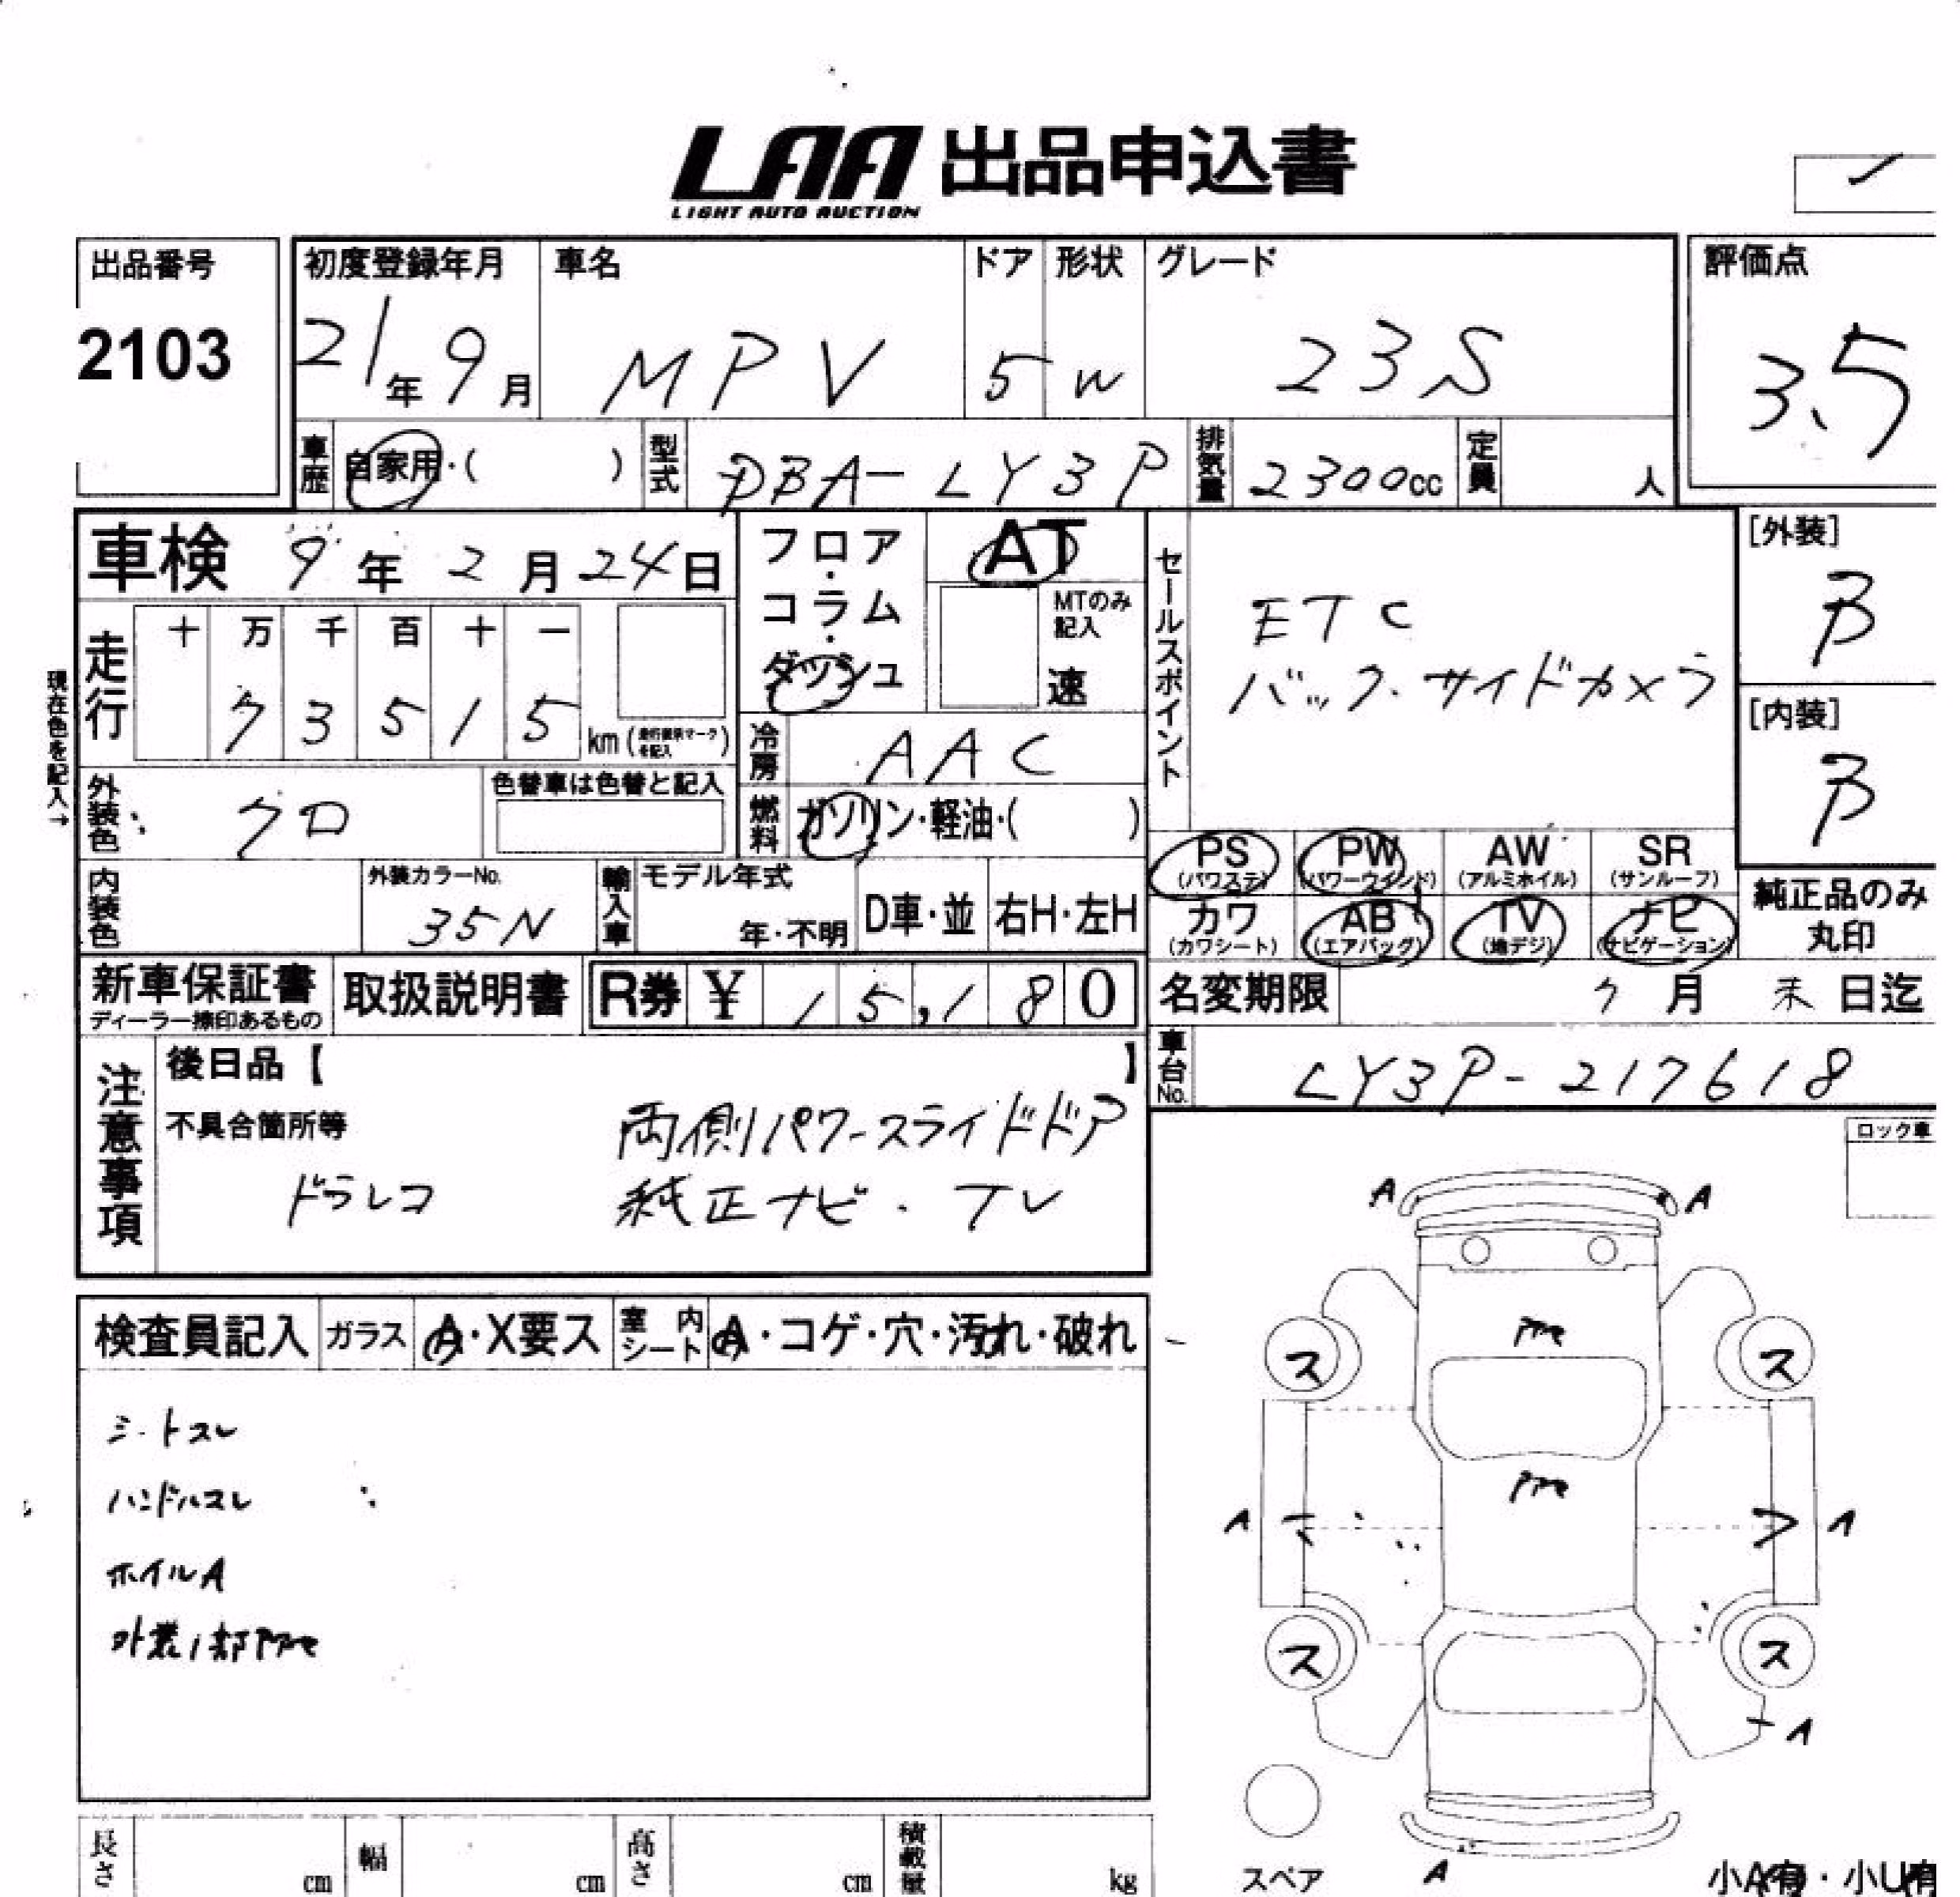 LAA 出品申込書
LIGHT AUTO AUCTION
出品番号
2103
初度登録年月
21年9月
車名
MPV
ドア
5
形状
W
グレード
23S
評価点
3.5
車歴
自家用・( )
型式
DBA-LY3P
排気量
2300cc
定員
人
車検 9年2月24日
フロア・コラム・ダッシュ
AT
MTのみ記入
速
セールスポイント
ETC
バック・サイドカメラ
[外装]
B
[内装]
B
現在色を記入→
走行
十 万 千 百 十 一
7 3 5 1 5 km
冷房
AAC
外装色
クロ
色替車は色替と記入
燃料
ガソリン・軽油・( )
PS
(パワステ)
PW
(パワーウインド)
AW
(アルミホイル)
SR
(サンルーフ)
カワ
(カワシート)
AB
(エアバッグ)
TV
(地デジ)
ナビ
(ナビゲーション)
純正品のみ
丸印
内装色
外装カラーNo.
35N
輸入車
モデル年式
年・不明
D車・並
右H・左H
新車保証書
ディーラー捺印あるもの
取扱説明書
R券 ¥ 15,180
名変期限
月 末 日迄
車台No.
LY3P-217618
注意事項
後日品【 】
不具合箇所等
両側パワースライドドア
ドラレコ
純正ナビ・TV
ロック車
A A
ス ス
A A
ス ス
A
スペア
A
小A有・小U有
検査員記入
ガラス
A・X要ス
室内シート
A・コゲ・穴・汚れ・破れ
シートスレ
ハンドルスレ
ホイルA
長さ cm
幅 cm
高さ cm
積載量 kg